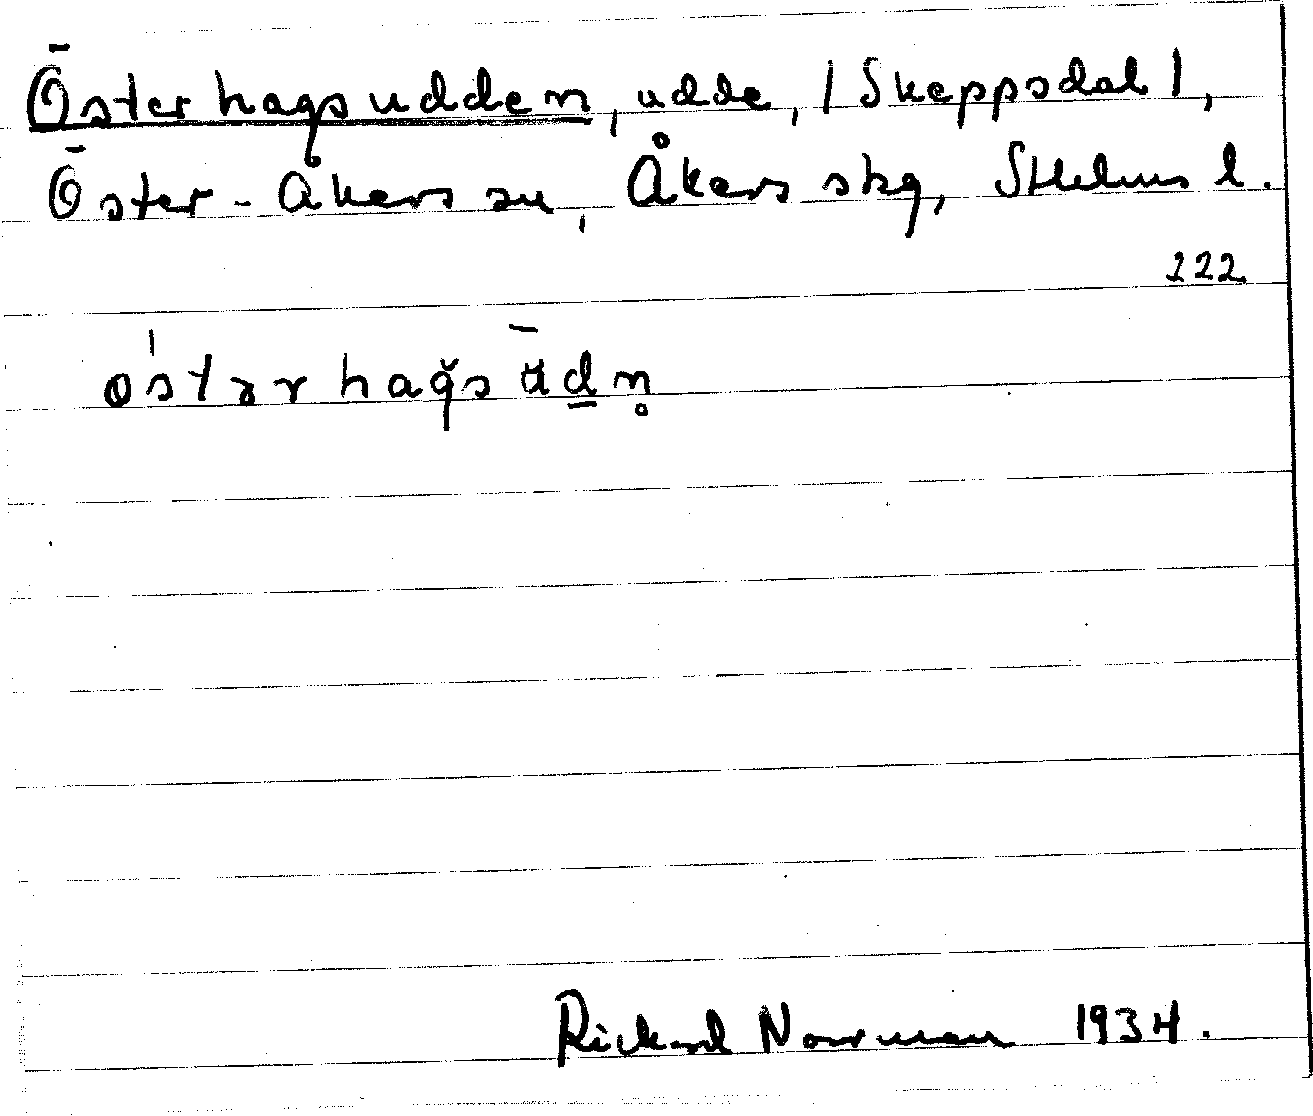 Österhagsudden, udde, /Skeppsdal/,
Öster-Åkers sn, Åkers skg, Sthlms l.
222.
östərhaǧsūdn̥
Rickard Norrman 1934.